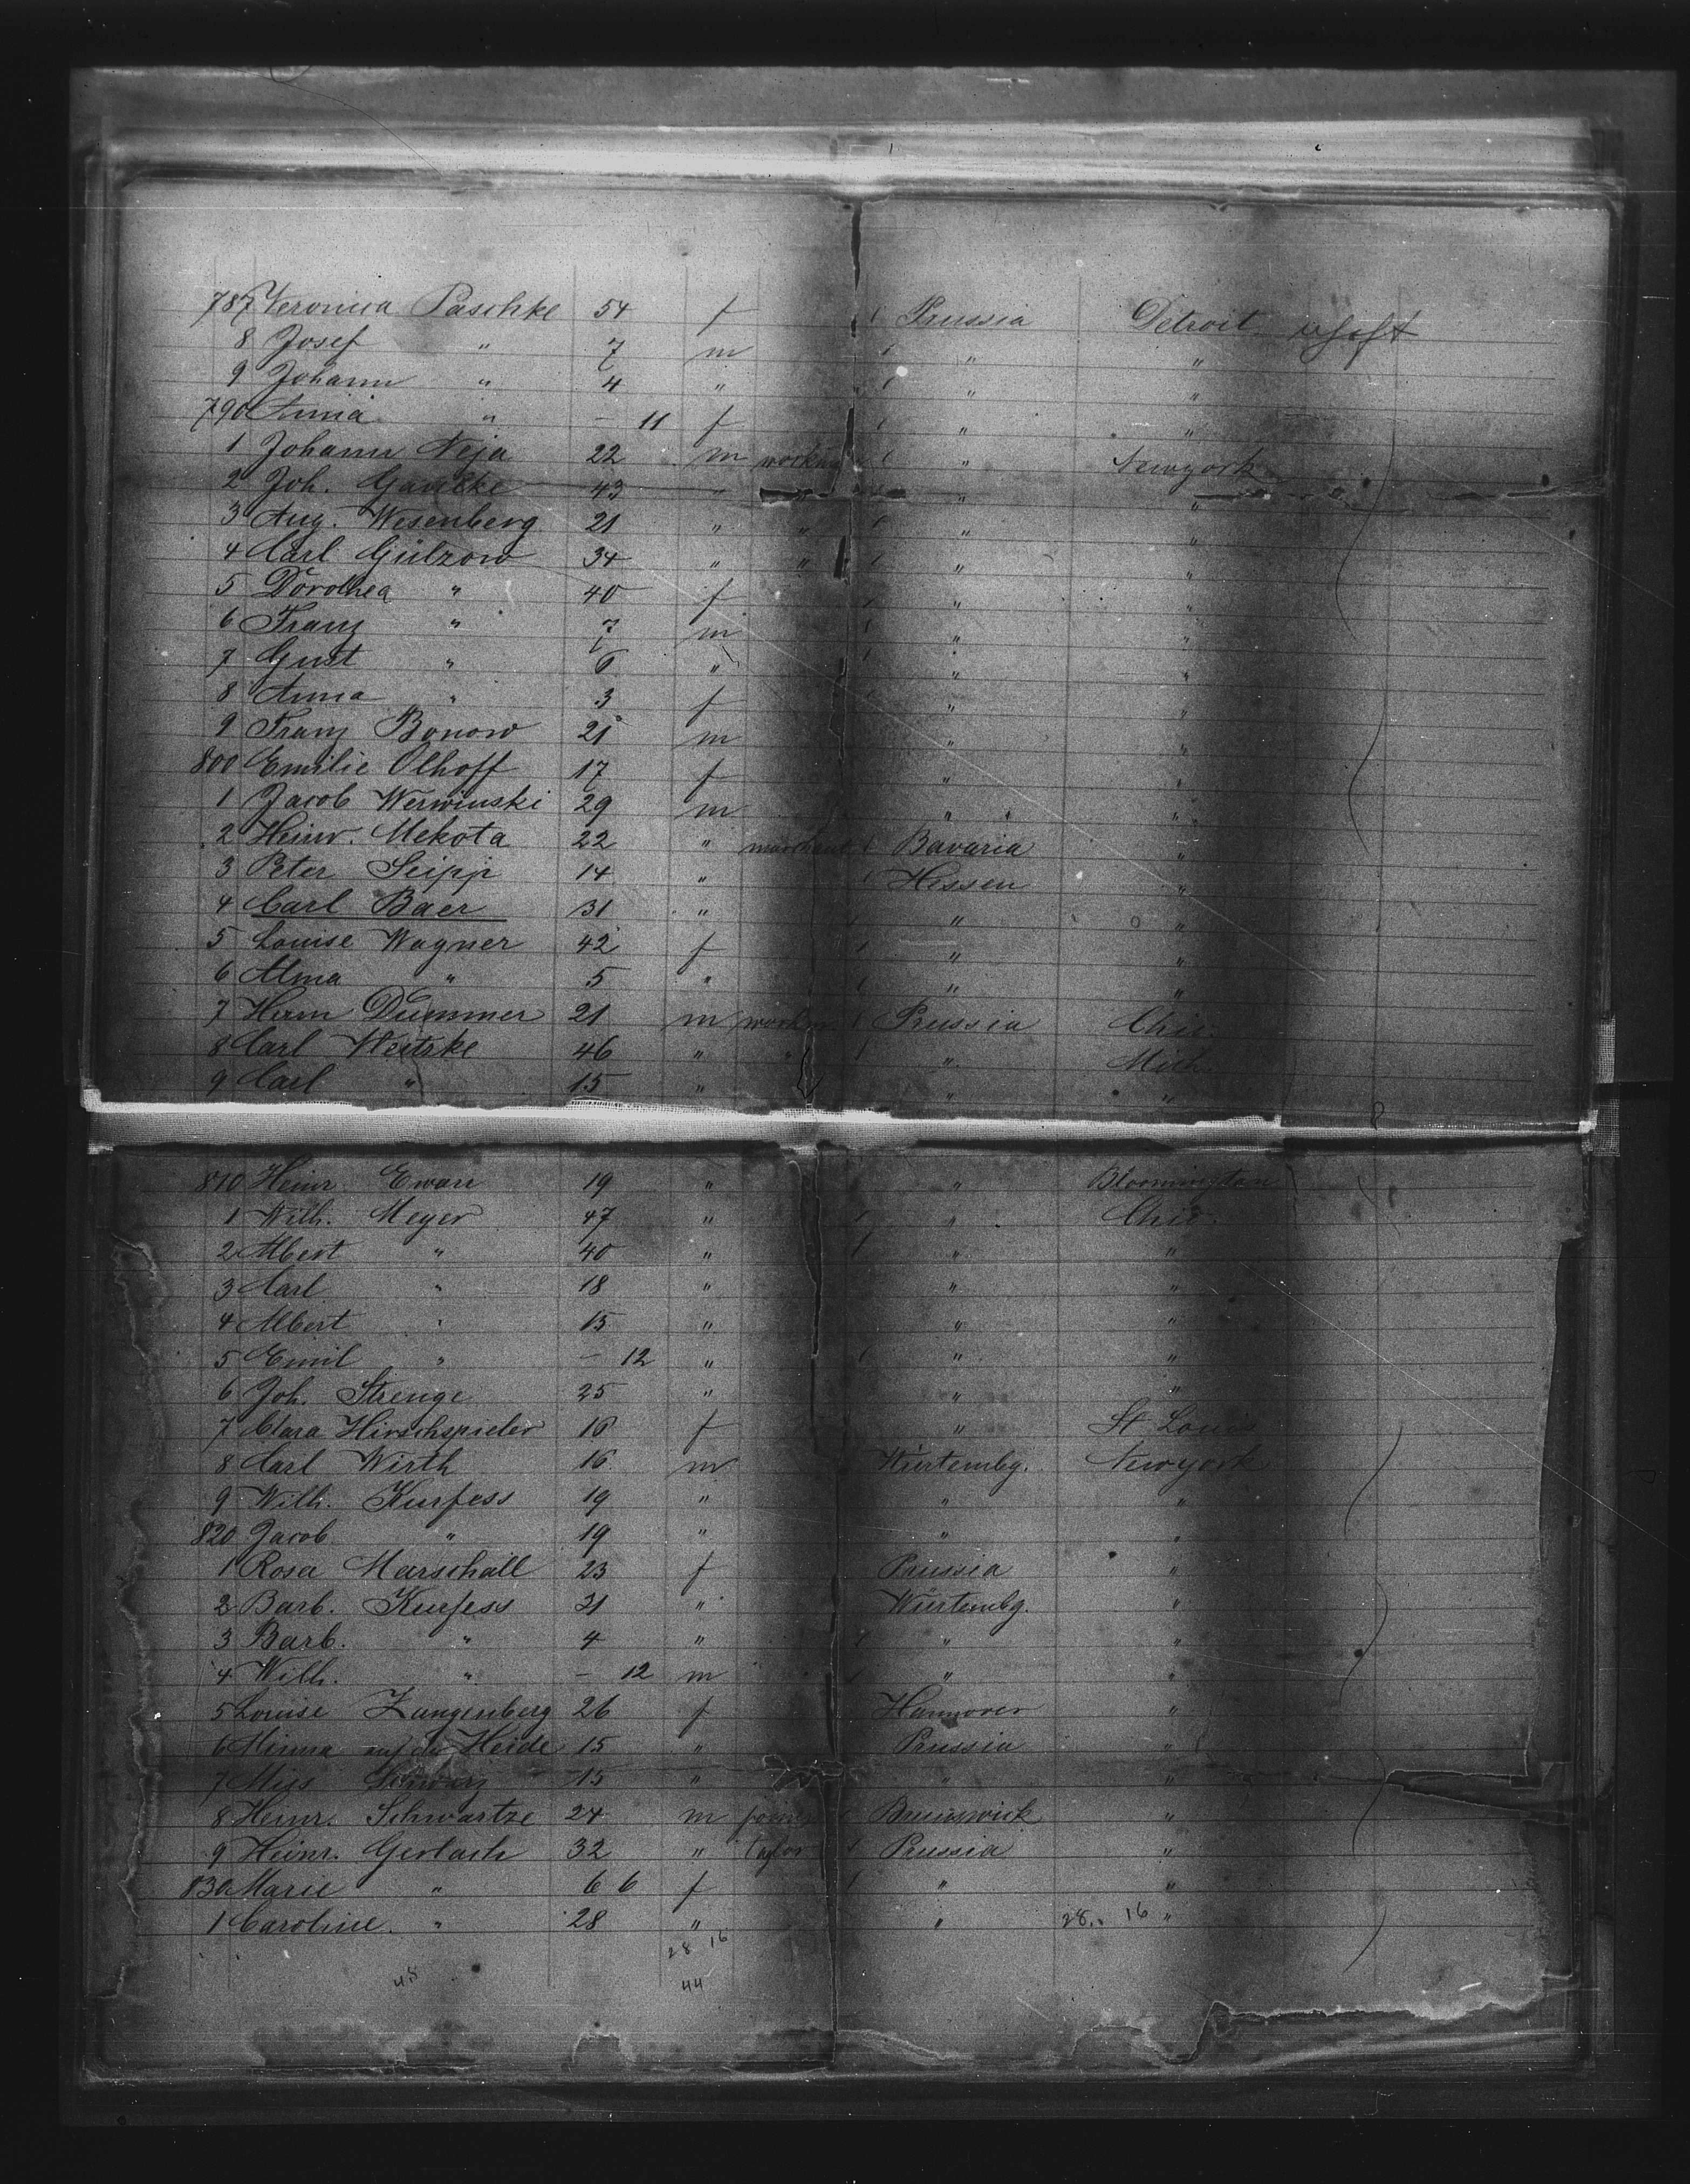 787 Veronica Paschke 54 f 1 Prussia Detroit
8 Josef " 7 m 1 " "
9 Johann " 4 " 1 " "
790 Anna " - 11 f 1 " "
1 Johann Neja 22 m 1 " Newyork
2 Joh. 43 " " " "
3 Aug. Wesenberg 21 " " 1 " "
4 Carl Gülzow 34 " " 1 " "
5 Dorothea " 40 f 1 " "
6 Franz " 7 m 1 " "
7 Gust " 6 " 1 " "
8 Anna " 3 f " "
9 Franz Bonow 21 m " "
800 Emilie Olhoff 17 f " "
1 Jacob Werwinski 29 m " "
2 Heinr. Mekota 22 " merchant 1 Bavaria "
3 Peter Seipp 14 " Hessen "
4 Carl Baer 31 " " "
5 Louise Wagner 42 f 1 " "
6 Alma " 5 " 1 " "
7 Herm Dummer 21 m 1 Prussia
8 Carl 46 " " 1 " Mich.
9 Carl " 15 " " "
810 Heinr. 19 " " Bloomington
1 Wilh. Meyer 47 " 1 "
2 Albert " 40 " 1 " "
3 Carl " 18 " " "
4 Albert " 15 " " "
5 Emil " - 12 " 1 " "
6 Joh. Strenge 25 " " "
7 Clara Hirschspieler 16 f " St Louis
8 Carl Wirth 16 m Würtembg. Newyork
9 Wilh. Kurfess 19 " " "
820 Jacob " 19 " " "
1 Rosa Marschall 23 f Prussia "
2 Barb. Kurfess 31 " Würtembg. "
3 Barb. " 4 " 1 " "
4 Wilh. " - 12 m 1 " "
5 Louise Zangenberg 26 f Hannover "
6 Minna auf der Heide 15 " Prussia "
7 Miss 15 " " "
8 Heinr. Schwartze 24 m Brunswick "
9 Heinr. Gerlach 32 " 1 Prussia "
830 Marie " 6 6 f 1 " "
1 Caroline " 28 " " 28. 16 "
28 16
48 44